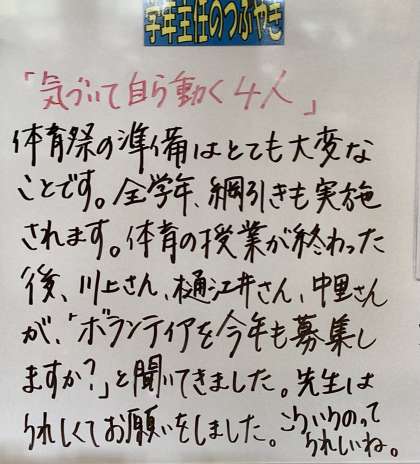 学年主任のつぶやき
「気づいて自ら動く4人」
体育祭の準備はとても大変な
ことです。全学年、綱引きも実施
されます。体育の授業が終わった
後、川上さん、樋江井さん、中里さん
が、「ボランティアを今年も募集し
ますか?」と聞いてきました。先生は
うれしくてお願いをしました。こういうのって
うれしいね。